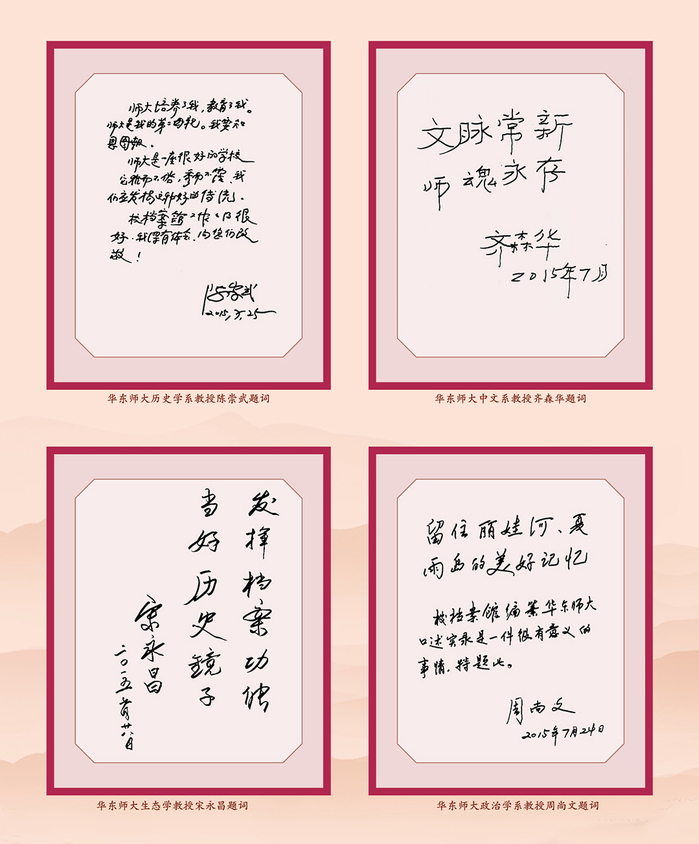 师大培养了我，教育了我。
师大是我的第二母亲。我要知
恩图报。
师大是一座很好的学校
它雅而不俗，秀而不
我
们应发扬这种好的传统。
校档案馆工作做得很
好，我深有体会，向你们致
敬！
陈崇武
2015.5.25
华东师大历史学系教授陈崇武题词
文脉常新
师魂永存
齐森华
2015年7月
华东师大中文系教授齐森华题词
发挥档案功能
当好历史镜子
宋永昌
二〇一五 月廿八日
华东师大生态学教授宋永昌题词
留住丽娃河、夏
雨岛的美好记忆
校档案馆编纂华东师大
口述实录是一件很有意义的
事情，特题此。
周尚文
2015年7月24日
华东师大政治学系教授周尚文题词